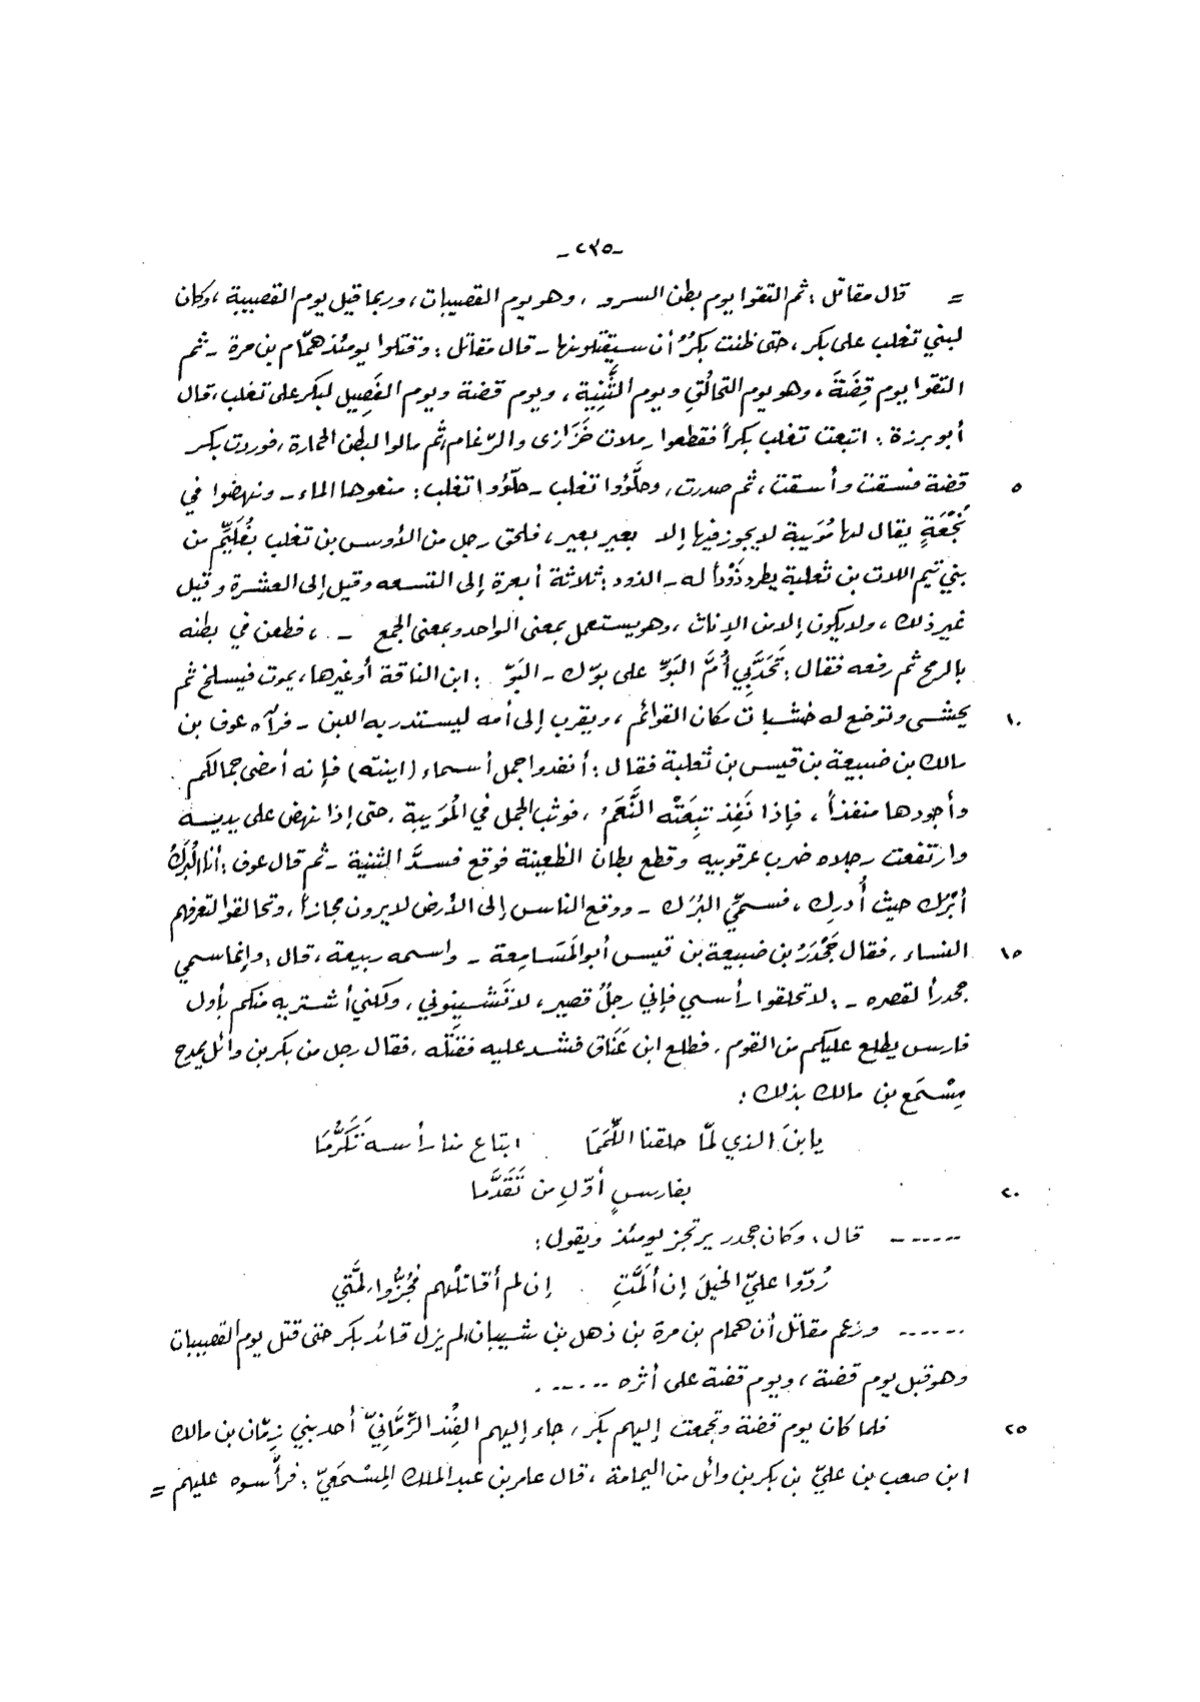 -٢٣٥-
= قال مقاتل : ثم التقوا يوم بطن السرور ، وهو يوم القصيبات ، وربما قيل يوم القصيبة ، وكان
لبني تغلب على بكر ، حتى ظنت بكرٌ أن سيقتلونها - قال مقاتل : وقتلوا يومئذ همّام بن مرة - ثم
التقوا يوم قِضَةَ ، وهو يوم التحالُقِ ويوم الثَّنِية ، ويوم قضة ويوم الفَصِيل لبكر على تغلب ، قال
أبو برزة : اتبعت تغلب بكراً فقطعوا رملات خَزَازى والرّغام ، ثم مالوا لبطن الحمارة ، فوردت بكر
٥ قضة فسقت وأسقت ، ثم صدرت ، وحلَّؤوا تغلب - حلّؤوا تغلب : منعوها الماء - ونهضوا في
نُجْعَةٍ يقال لها مُوَيبة لايجوز فيها إلا بعير بعير ، فلحق رجل من الأوس بن تغلب بغُلَيِّم من
بني تيم اللات بن ثعلبة يطرد ذَوْداً له - الذود : ثلاثة أبعرة إلى التسعه وقيل إلى العشرة وقيل
غير ذلك ، ولايكون إلا من الإناث ، وهو يستعمل بمعنى الواحد وبمعنى الجمع - ، فطعن في بطنه
بالرمح ثم رفعه فقال : تَحَدَّبِي أُمَّ البَوِّ على بوّك - البَوّ : ابن الناقة أو غيرها ، يموت فيسلخ ثم
١٠ يحشى وتوضع له خشبات مكان القوائم ، ويقرب إلى أمه ليستدر به اللبن - فرآه عوف بن
مالك بن ضبيعة بن قيس بن ثعلبة فقال : أنفدوا جمل أسماء (ابنته) فإنه أمضى جمالكم
وأجودها منفذاً ، فإذا نَفِذ تبِعَتْه النَّعَمُ ، فوثب الجمل في المُوَيبة ، حتى إذا نهض على يديه
وارتفعت رجلاه ضرب عرقوبيه وقطع بطان الظعينة فوقع فسدَّ الثنية - ثم قال عوف : أنا البُرَكُ
أبْرُك حيث أُدرِك ، فسمّي البُرَك - ووقع الناس إلى الأرض لايرون مجازاً ، وتحالقوا لتعرفهم
١٥ النساء ، فقال جَحْدَرُ بن ضبيعة بن قيس أبو المَسَامِعة - واسمه ربيعة ، قال : وإنما سمي
جحدراً لقصره - : لا تحلقوا رأسي فإني رجلٌ قصير ، لا تَشينوني ، ولكني أشتريه منكم بأول
فارس يطلع عليكم من القوم ، فطلع ابن عَنَاق فشد عليه فقتَله ، فقال رجل من بكر بن وائل يمدح
مِسْمَع بن مالك بذلك :
يا ابنَ الذي لمّا حلقنا اللَّمَمَا ابتاع منا رأسه تَكَرُّمَا
٢٠ بفارسٍ أوّلِ من تَقَدَّما
------ قال ، وكان جحدر يرتجز يومئذ ويقول :
رُدّوا عليّ الخيلَ إن ألَمَّتِ إن لم أقاتلْهم فجُزُّوا لِمَّتي
...... وزعم مقاتل أن همام بن مرة بن ذهل بن شيبان لم يزل قائد بكر حتى قتل يوم القصيبات
وهو قبل يوم قضة ، ويوم قضة على أثره ...... .
٢٥ فلما كان يوم قضة وتجمعت إليهم بكر ، جاء إليهم الفِنْد الزِّمَّانِيّ أحد بني زِمّان بن مالك
ابن صعب بن عليّ بن بكر بن وائل من اليمامة ، قال عامر بن عبد الملك المِسْمَعيّ : فرأَّسوه عليهم =